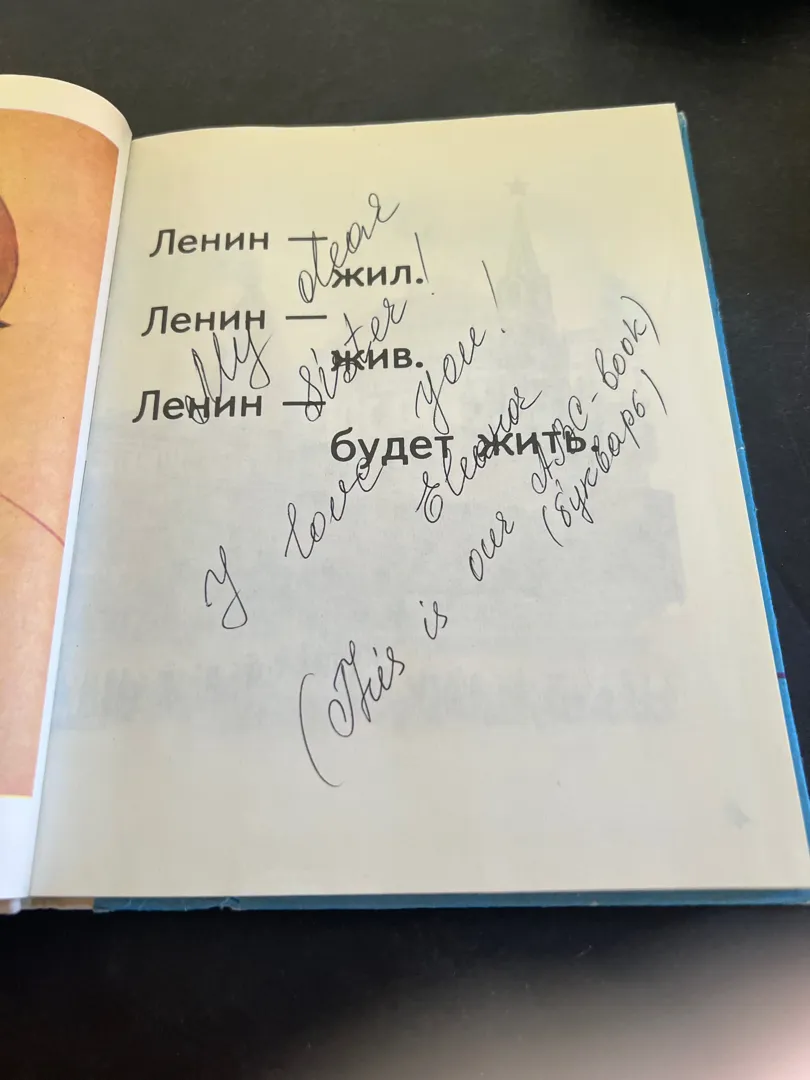 Ленин —
жил.
Ленин —
жив.
Ленин —
будет жить.
My dear
sister!
I love you!
Eleanor
(This is our ABC-book)
(букварь)